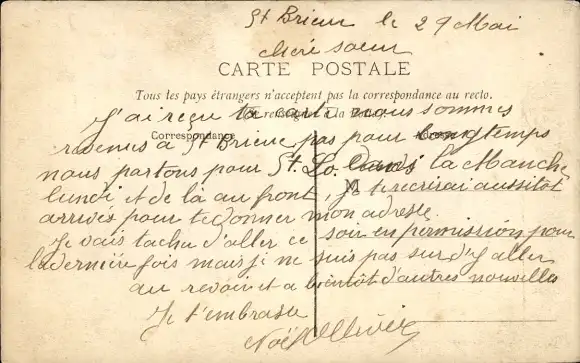 St Brieuc le 29 Mai
chère soeur
CARTE POSTALE
Tous les pays étrangers n'acceptent pas la correspondance au recto.
J'ai reçu ta carte nous sommes
Correspondance
revenus a St Brieuc pas pour longtemps
nous partons pour St. Lo. dans la Manche
lundi et de là au front, je te recrirai aussitôt
arrivés pour te donner mon adresse.
Je vais tacher d'aller ce soir en permission pour
la dernière fois mais je ne suis pas sur d'y aller
au revoir et a bientôt d'autres nouvelles
Je t'embrasse
Noël Ollivier